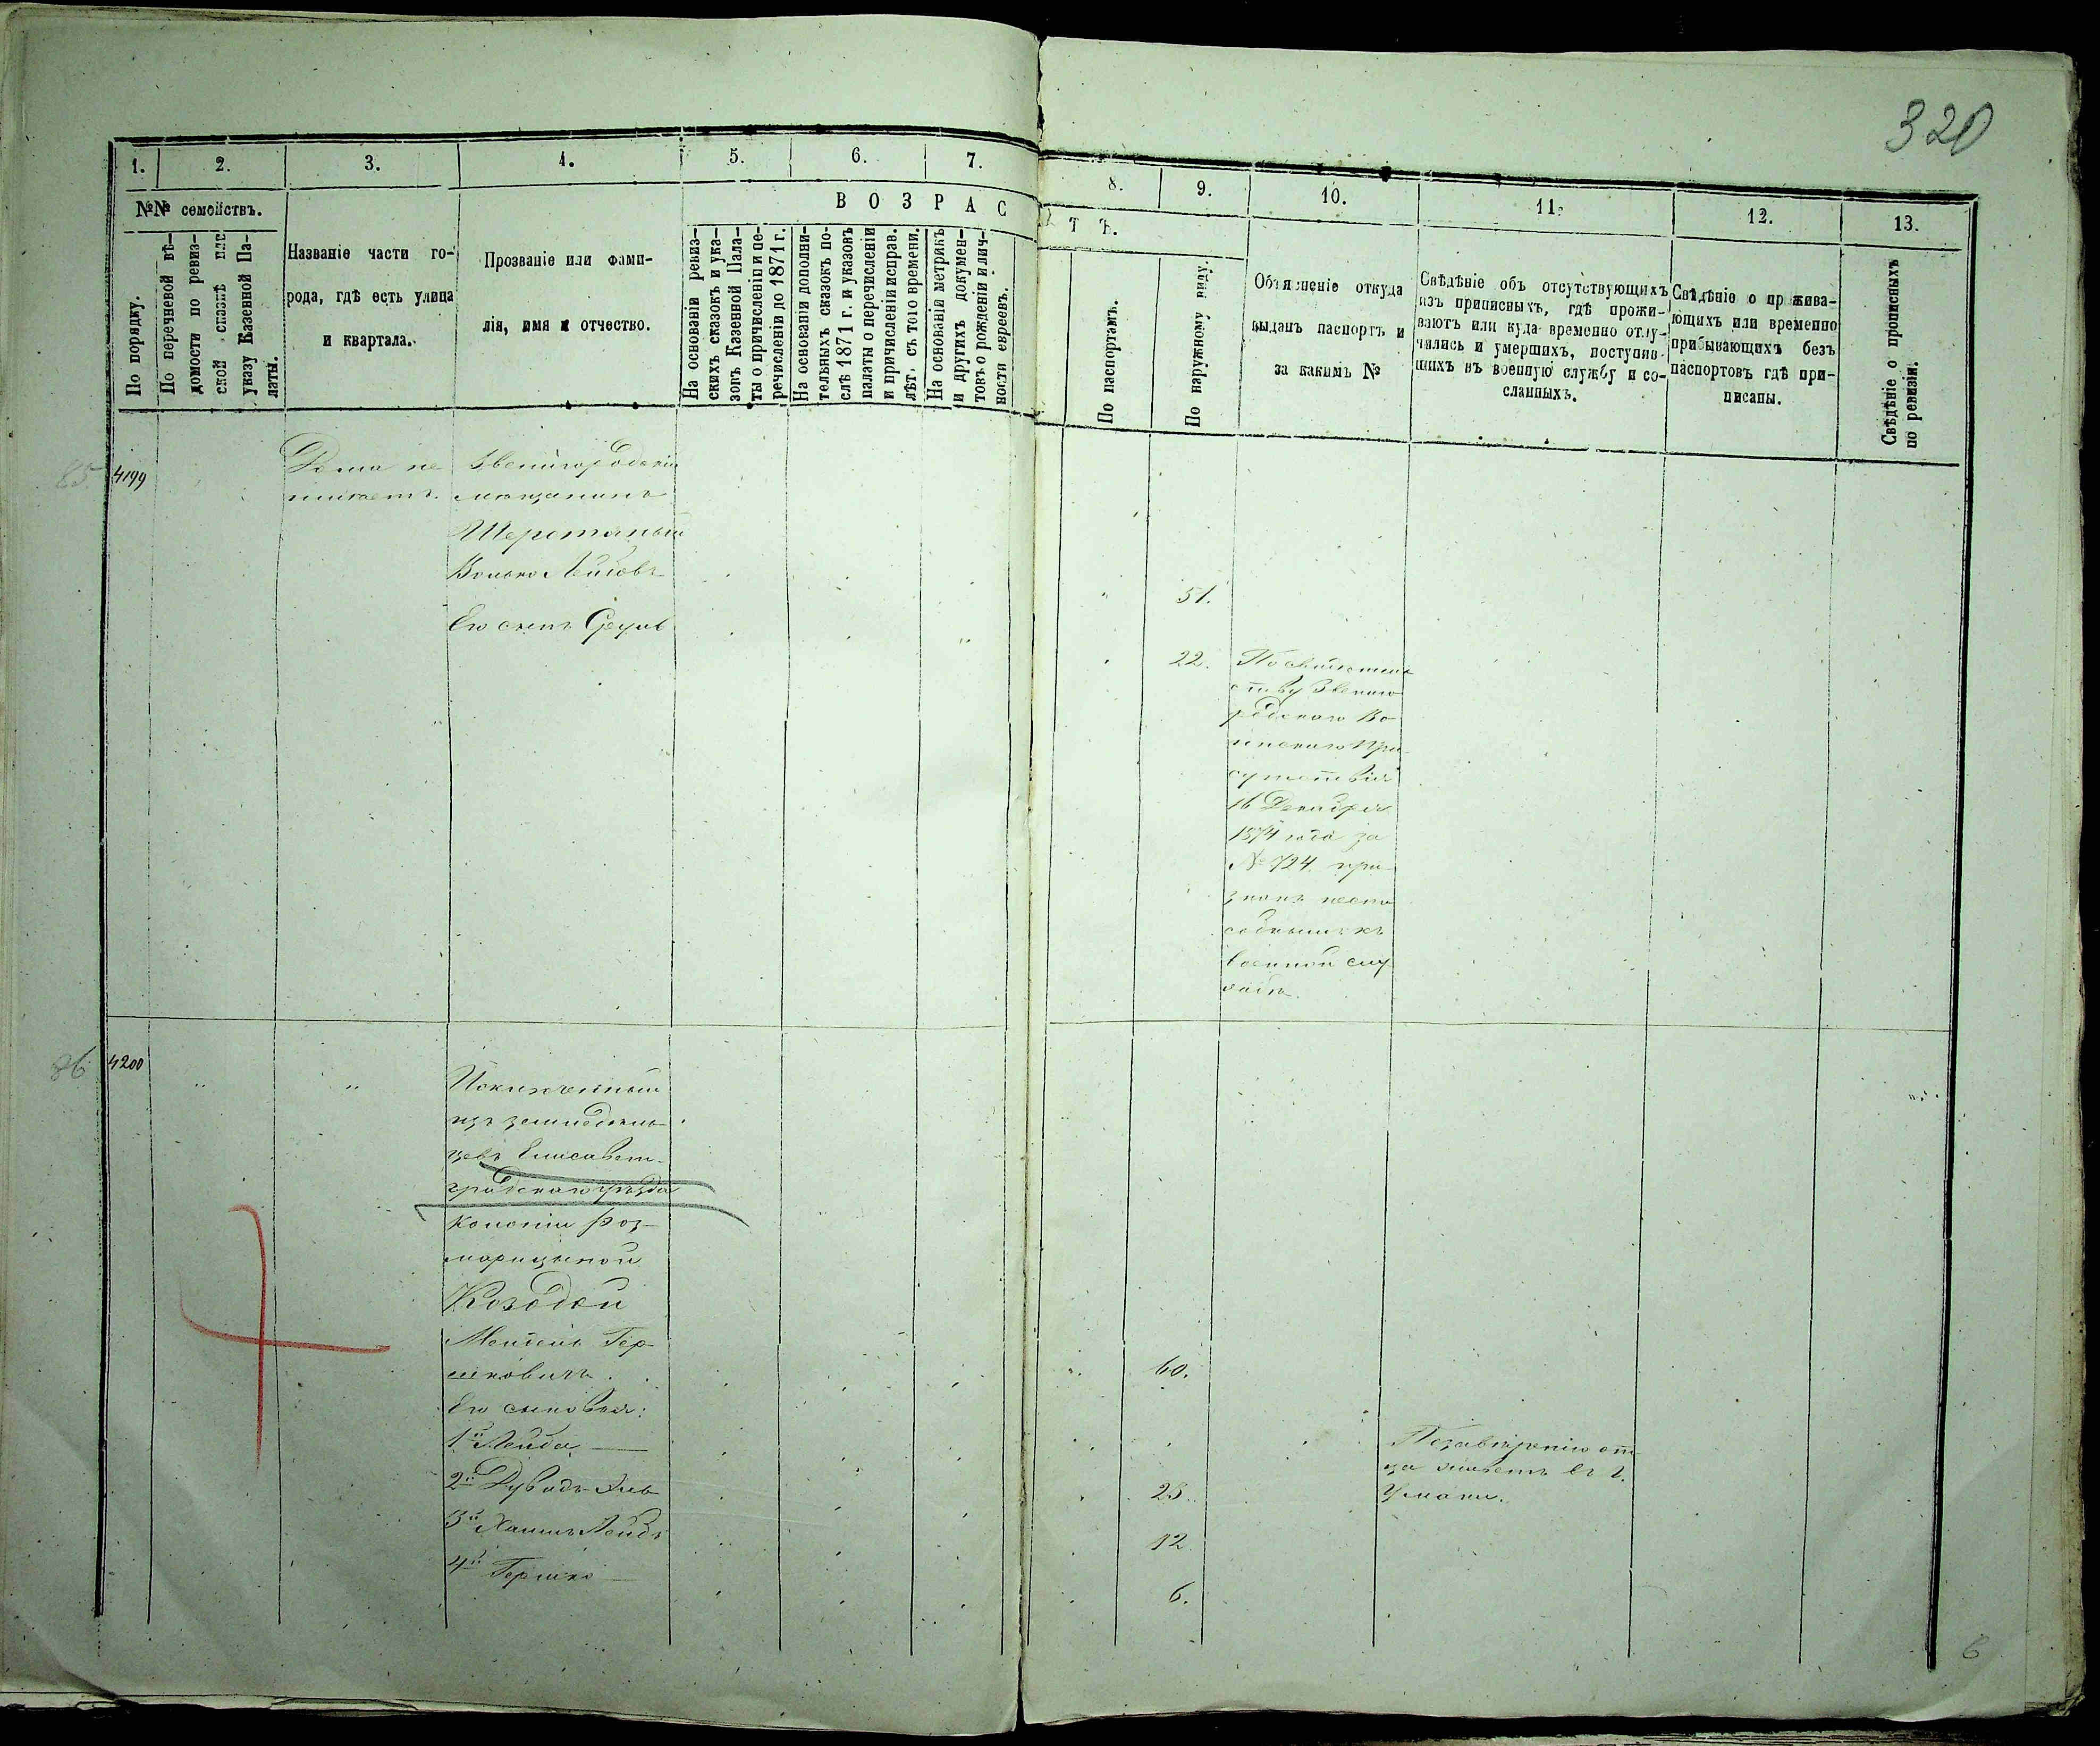 320
1.
2.
3.
4.
5.
6.
7.
8.
9.
10.
11.
12.
13.
№№ семействъ.
ВОЗРАС
ТЪ.
По порядку.
По перечневой вѣ-
домости по ревиз-
ской сказкѣ или
указу Казенной Па-
латы.
Названіе части го-
рода, гдѣ есть улица
и квартала.
Прозваніе или фами-
лія, имя и отчество.
На основаніи ревиз-
скихъ сказокъ и ука-
зокъ Казенной Пала-
ты о причисленіи и пе-
речисленіи до 1871 г.
На основаніи дополни-
тельныхъ сказокъ по-
слѣ 1871 г. и указовъ
палаты о перечисленіи
и причисленіи исправ.
лѣт. съ того времени.
На основаніи метрикъ
и другихъ докумен-
товъ о рожденіи и лич-
ности евреевъ.
По паспортамъ.
По наружному виду.
Объясненіе откуда
выданъ паспортъ и
за какимъ №
Свѣдѣніе объ отсутствующихъ
изъ приписныхъ, гдѣ прожи-
ваютъ или куда временно отлу-
чились и умершихъ, поступив-
шихъ въ военную службу и со-
сланныхъ.
Свѣдѣніе о прожива-
ющихъ или временно
прибывающихъ безъ
паспортовъ гдѣ при-
писаны.
Свѣдѣніе о прописныхъ
по ревизіи.
85
4199
Дома не
имѣетъ.
Звенигородскій
мѣщанинъ
Шерстяный
Волько Лейбовъ
51.
Его сынъ Сруль
22.
По свидѣтель
ству Звениго
родскаго Во
инскаго При
сутствія
16 Декабря
1874 года за
№ 724 при
знанъ неспо
собнымъ къ
военной слу
жбѣ.
86
4200
Исключенный
изъ земледѣль
цевъ Елисавет-
градскаго уѣзда
колоніи
Козодой
Мендель Гер
шковичъ.
60.
Его сыновья:
1й Лейба
По завѣренію от
ца живетъ въ г.
Умани.
2й Дувидъ
25.
3й Хаимъ Лейбъ
12
4й Гершко
6.
6